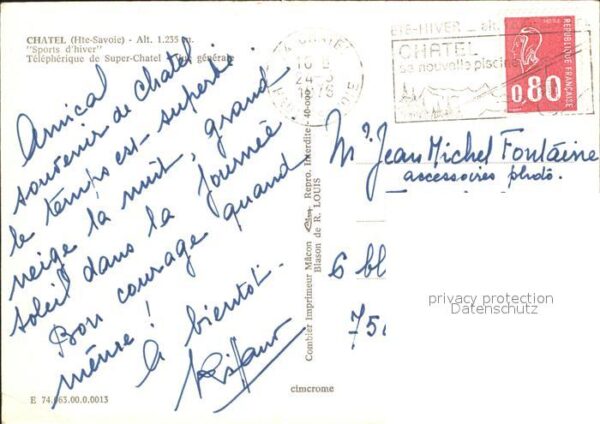 CHATEL (Hte-Savoie) - Alt. 1.235 m.
"Sports d'hiver"
Téléphérique de Super-Chatel - Vue générale
Amical
souvenir de Chatel
le temps est superbe
neige la nuit, grand
soleil dans la journée.
Bon courage quand
même !
à bientôt.
E 74.063.00.0.0013
cimcrome
Combier Imprimeur Mâcon Repro. Interdite
Blason de R. LOUIS
ÉTÉ-HIVER
CHATEL
sa nouvelle piscine
0,80
REPUBLIQUE FRANÇAISE
Mr Jean Michel Fontaine
accessoires photo.
6 bl
75
privacy protection
Datenschutz